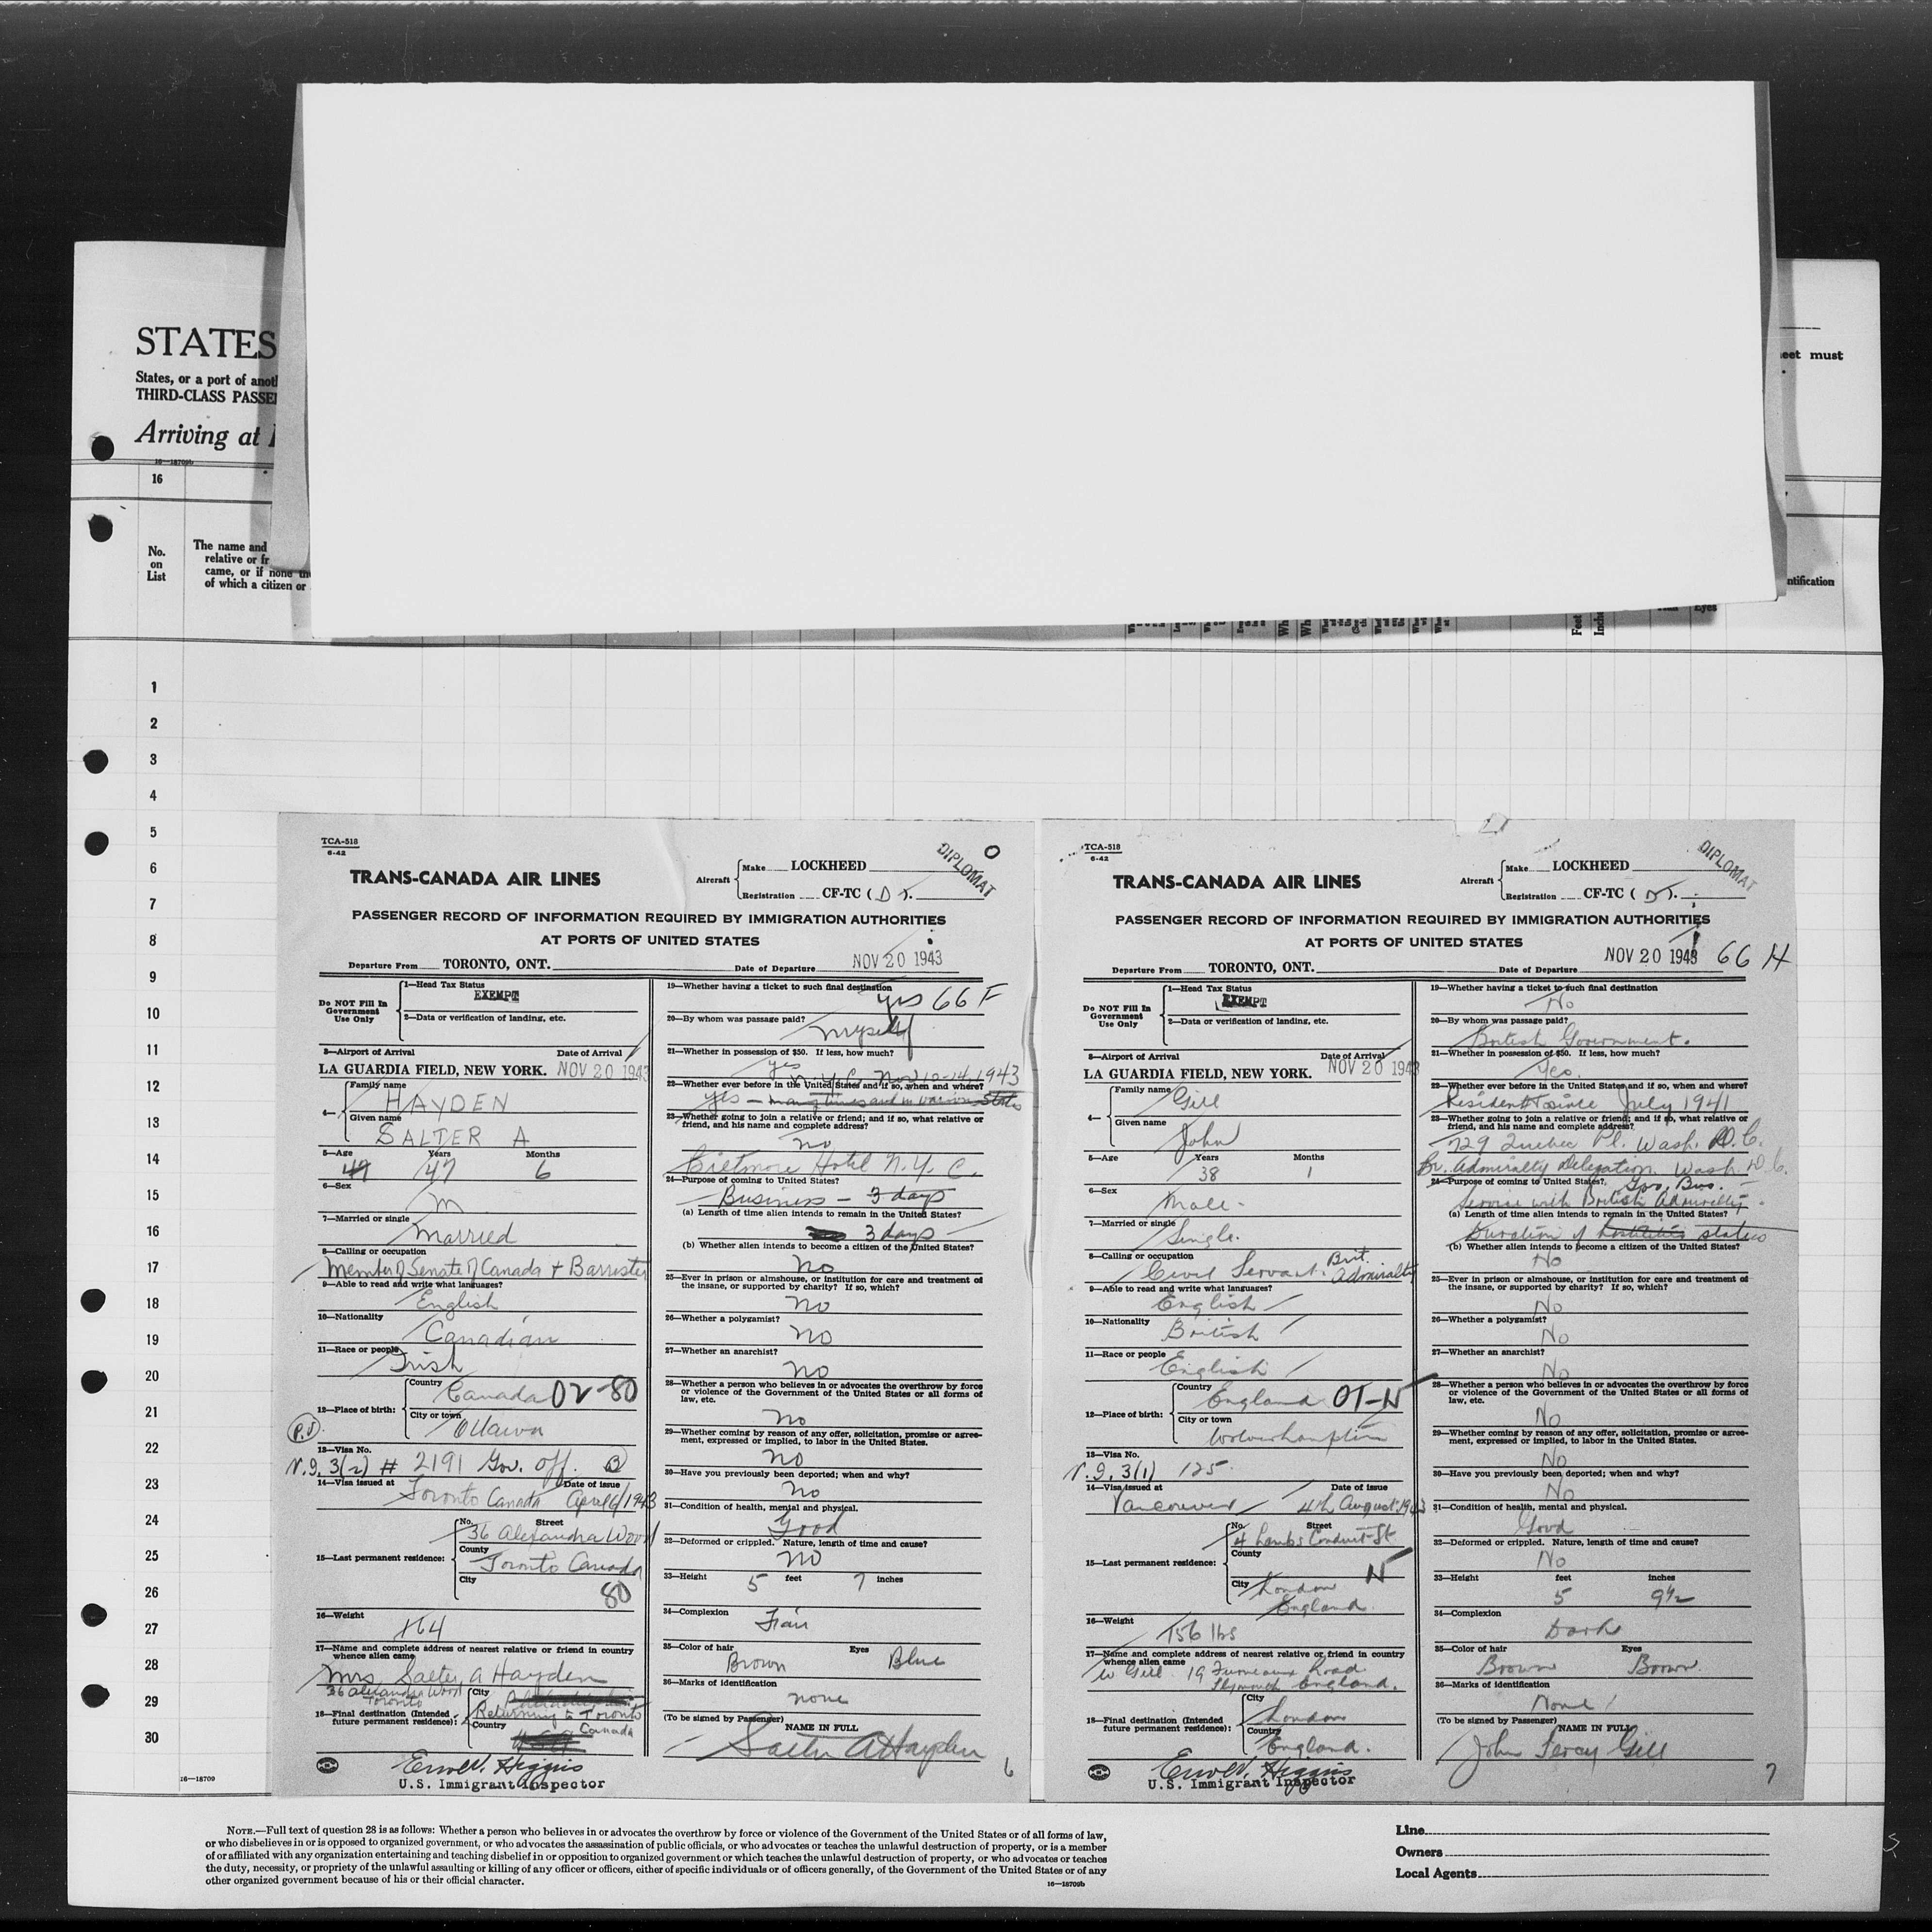 STATES
States, or a port of anot
THIRD-CLASS PASSE
Arriving at
16—18709b
eet must
16
No.
on
List
The name and
relative or fr
came, or if none th
of which a citizen or
ntification
Eyes
Feet
1
2
3
4
5
6
7
8
9
10
11
12
13
14
15
16
17
18
19
20
21
22
23
24
25
26
27
28
29
30
16—18709
TCA-518
6-42
TRANS-CANADA AIR LINES
Aircraft
Make LOCKHEED
Registration CF-TC ( D ).
DIPLOMAT
O
PASSENGER RECORD OF INFORMATION REQUIRED BY IMMIGRATION AUTHORITIES
AT PORTS OF UNITED STATES
Departure From TORONTO, ONT.
Date of Departure NOV 20 1943
Do NOT Fill In
Government
Use Only
1—Head Tax Status
EXEMPT
2—Data or verification of landing, etc.
3—Airport of Arrival Date of Arrival
LA GUARDIA FIELD, NEW YORK. NOV 20 1943
4—
Family name
HAYDEN
Given name
SALTER A
5—Age Years Months
47 47 6
6—Sex
M
7—Married or single
Married
8—Calling or occupation
Member of Senate of Canada + Barrister
9—Able to read and write what languages?
English
10—Nationality
Canadian
11—Race or people
Irish
12—Place of birth:
Country
Canada 02-80
City or town
Ottawa
P.V.
13—Visa No.
V.9. 3(2) # 2191 Gov. Off. B
14—Visa issued at Date of issue
Toronto Canada April 6/1943
15—Last permanent residence:
No. Street
36 Alexandra Wood
County
Toronto Canada
City
80
16—Weight
164
17—Name and complete address of nearest relative or friend in country
whence alien came
Mrs Salter A Hayden
36 Alexandra Wood
Toronto
18—Final destination (Intended
future permanent residence):
City
Returning to Toronto
Country
Canada
Higgins
U.S. Immigrant Inspector
19—Whether having a ticket to such final destination
yes 66 F
20—By whom was passage paid?
myself
21—Whether in possession of $50. If less, how much?
yes
N.Y.C. Nov 10-14, 1943
22—Whether ever before in the United States and if so, when and where?
yes — many times and in various States
23—Whether going to join a relative or friend; and if so, what relative or
friend, and his name and complete address?
no
Biltmore Hotel N.Y.C.
24—Purpose of coming to United States?
Business — 3 days
(a) Length of time alien intends to remain in the United States?
3 days
(b) Whether alien intends to become a citizen of the United States?
no
25—Ever in prison or almshouse, or institution for care and treatment of
the insane, or supported by charity? If so, which?
no
26—Whether a polygamist?
no
27—Whether an anarchist?
no
28—Whether a person who believes in or advocates the overthrow by force
or violence of the Government of the United States or all forms of
law, etc.
no
29—Whether coming by reason of any offer, solicitation, promise or agree-
ment, expressed or implied, to labor in the United States.
no
30—Have you previously been deported; when and why?
no
31—Condition of health, mental and physical.
Good
32—Deformed or crippled. Nature, length of time and cause?
no
33—Height 5 feet 7 inches
34—Complexion
Fair
35—Color of hair Eyes
Brown Blue
36—Marks of identification
none
(To be signed by Passenger)
NAME IN FULL
Salter A Hayden
6
TCA-518
6-42
TRANS-CANADA AIR LINES
Aircraft
Make LOCKHEED
Registration CF-TC ( D ).
DIPLOMAT
PASSENGER RECORD OF INFORMATION REQUIRED BY IMMIGRATION AUTHORITIES
AT PORTS OF UNITED STATES
Departure From TORONTO, ONT.
Date of Departure NOV 20 1943 66 H
Do NOT Fill In
Government
Use Only
1—Head Tax Status
EXEMPT
2—Data or verification of landing, etc.
3—Airport of Arrival Date of Arrival
LA GUARDIA FIELD, NEW YORK. NOV 20 1943
4—
Family name
Gill
Given name
John
5—Age Years Months
38 1
6—Sex
Male
7—Married or single
Single.
8—Calling or occupation
Civil Servant. Brit. Admiralty
9—Able to read and write what languages?
English
10—Nationality
British
11—Race or people
English
12—Place of birth:
Country
England OT-N
City or town
Wolverhampton
13—Visa No.
V.9. 3(1) 125
14—Visa issued at Date of issue
Vancouver 4th August 1943
15—Last permanent residence:
No. Street
4 Lambs Conduit St
County
N
City
London
England
16—Weight
156 lbs
17—Name and complete address of nearest relative or friend in country
whence alien came
W Gill 19 Furneaux Road
Plymouth England.
18—Final destination (Intended
future permanent residence):
City
London
Country
England.
Higgins
U.S. Immigrant Inspector
19—Whether having a ticket to such final destination
No
20—By whom was passage paid?
British Government.
21—Whether in possession of $50. If less, how much?
Yes.
22—Whether ever before in the United States and if so, when and where?
Resident since July 1941
23—Whether going to join a relative or friend; and if so, what relative or
friend, and his name and complete address?
729 Quebec Pl. Wash. D.C.
Br. Admiralty Delegation Wash. D.C.
24—Purpose of coming to United States? Gov. Bus.
Service with British Admiralty
(a) Length of time alien intends to remain in the United States?
Duration of hostilities status
(b) Whether alien intends to become a citizen of the United States?
No
25—Ever in prison or almshouse, or institution for care and treatment of
the insane, or supported by charity? If so, which?
No
26—Whether a polygamist?
No
27—Whether an anarchist?
No
28—Whether a person who believes in or advocates the overthrow by force
or violence of the Government of the United States or all forms of
law, etc.
No
29—Whether coming by reason of any offer, solicitation, promise or agree-
ment, expressed or implied, to labor in the United States.
No
30—Have you previously been deported; when and why?
No
31—Condition of health, mental and physical.
Good
32—Deformed or crippled. Nature, length of time and cause?
No
33—Height feet inches
5 9½
34—Complexion
Dark
35—Color of hair Eyes
Brown Brown
36—Marks of identification
None
(To be signed by Passenger)
NAME IN FULL
John Percy Gill
7
NOTE.—Full text of question 28 is as follows: Whether a person who believes in or advocates the overthrow by force or violence of the Government of the United States or of all forms of law,
or who disbelieves in or is opposed to organized government, or who advocates the assassination of public officials, or who advocates or teaches the unlawful destruction of property, or is a member
of or affiliated with any organization entertaining and teaching disbelief in or opposition to organized government or which teaches the unlawful destruction of property, or who advocates or teaches
the duty, necessity, or propriety of the unlawful assaulting or killing of any officer or officers, either of specific individuals or of officers generally, of the Government of the United States or of any
other organized government because of his or their official character.
16—18709b
Line
Owners
Local Agents